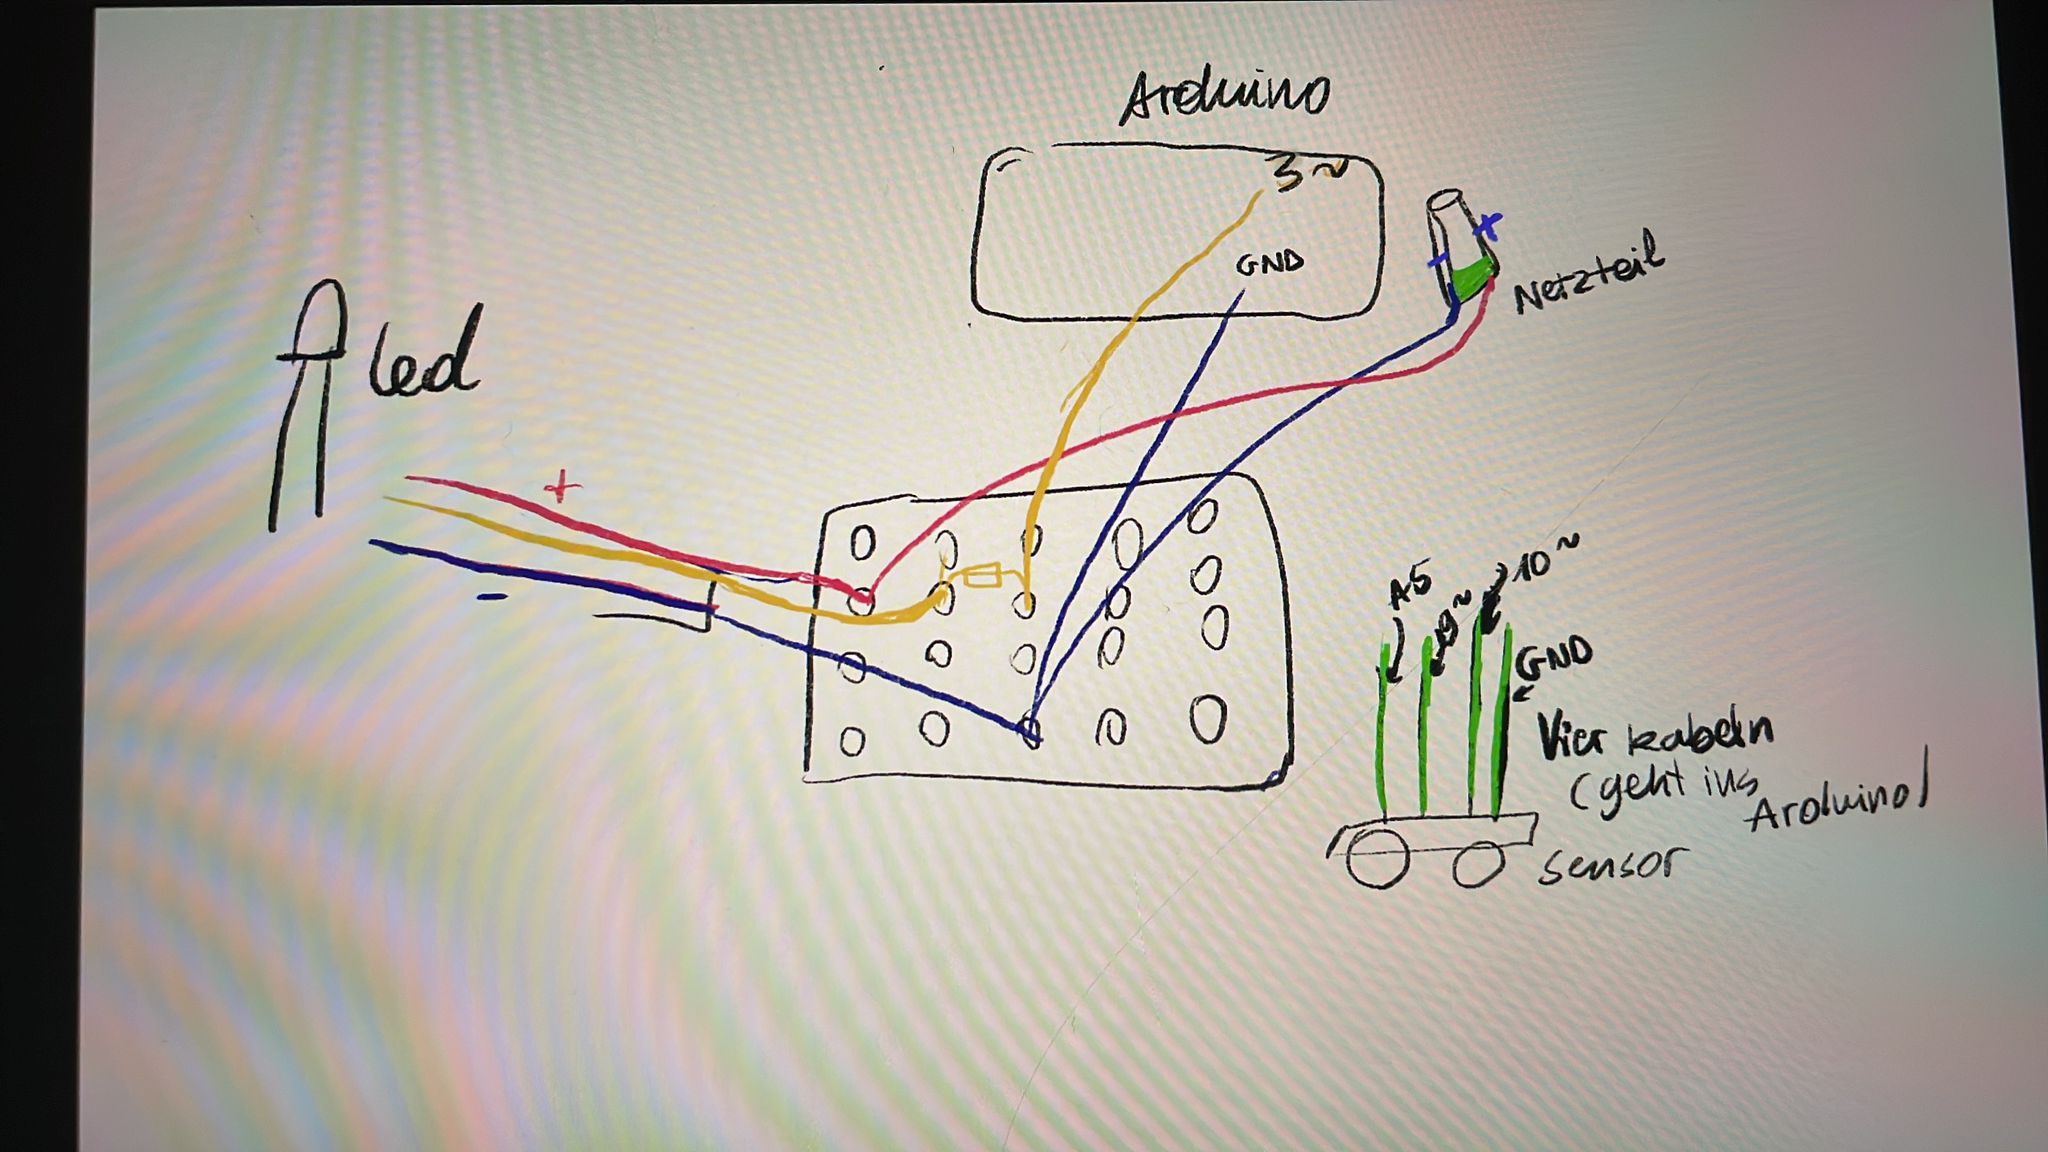 Arduino
3~
GND
+
-
Netzteil
led
+
-
10~
A5
GND
Vier kabeln
(geht ins
Arduino)
sensor